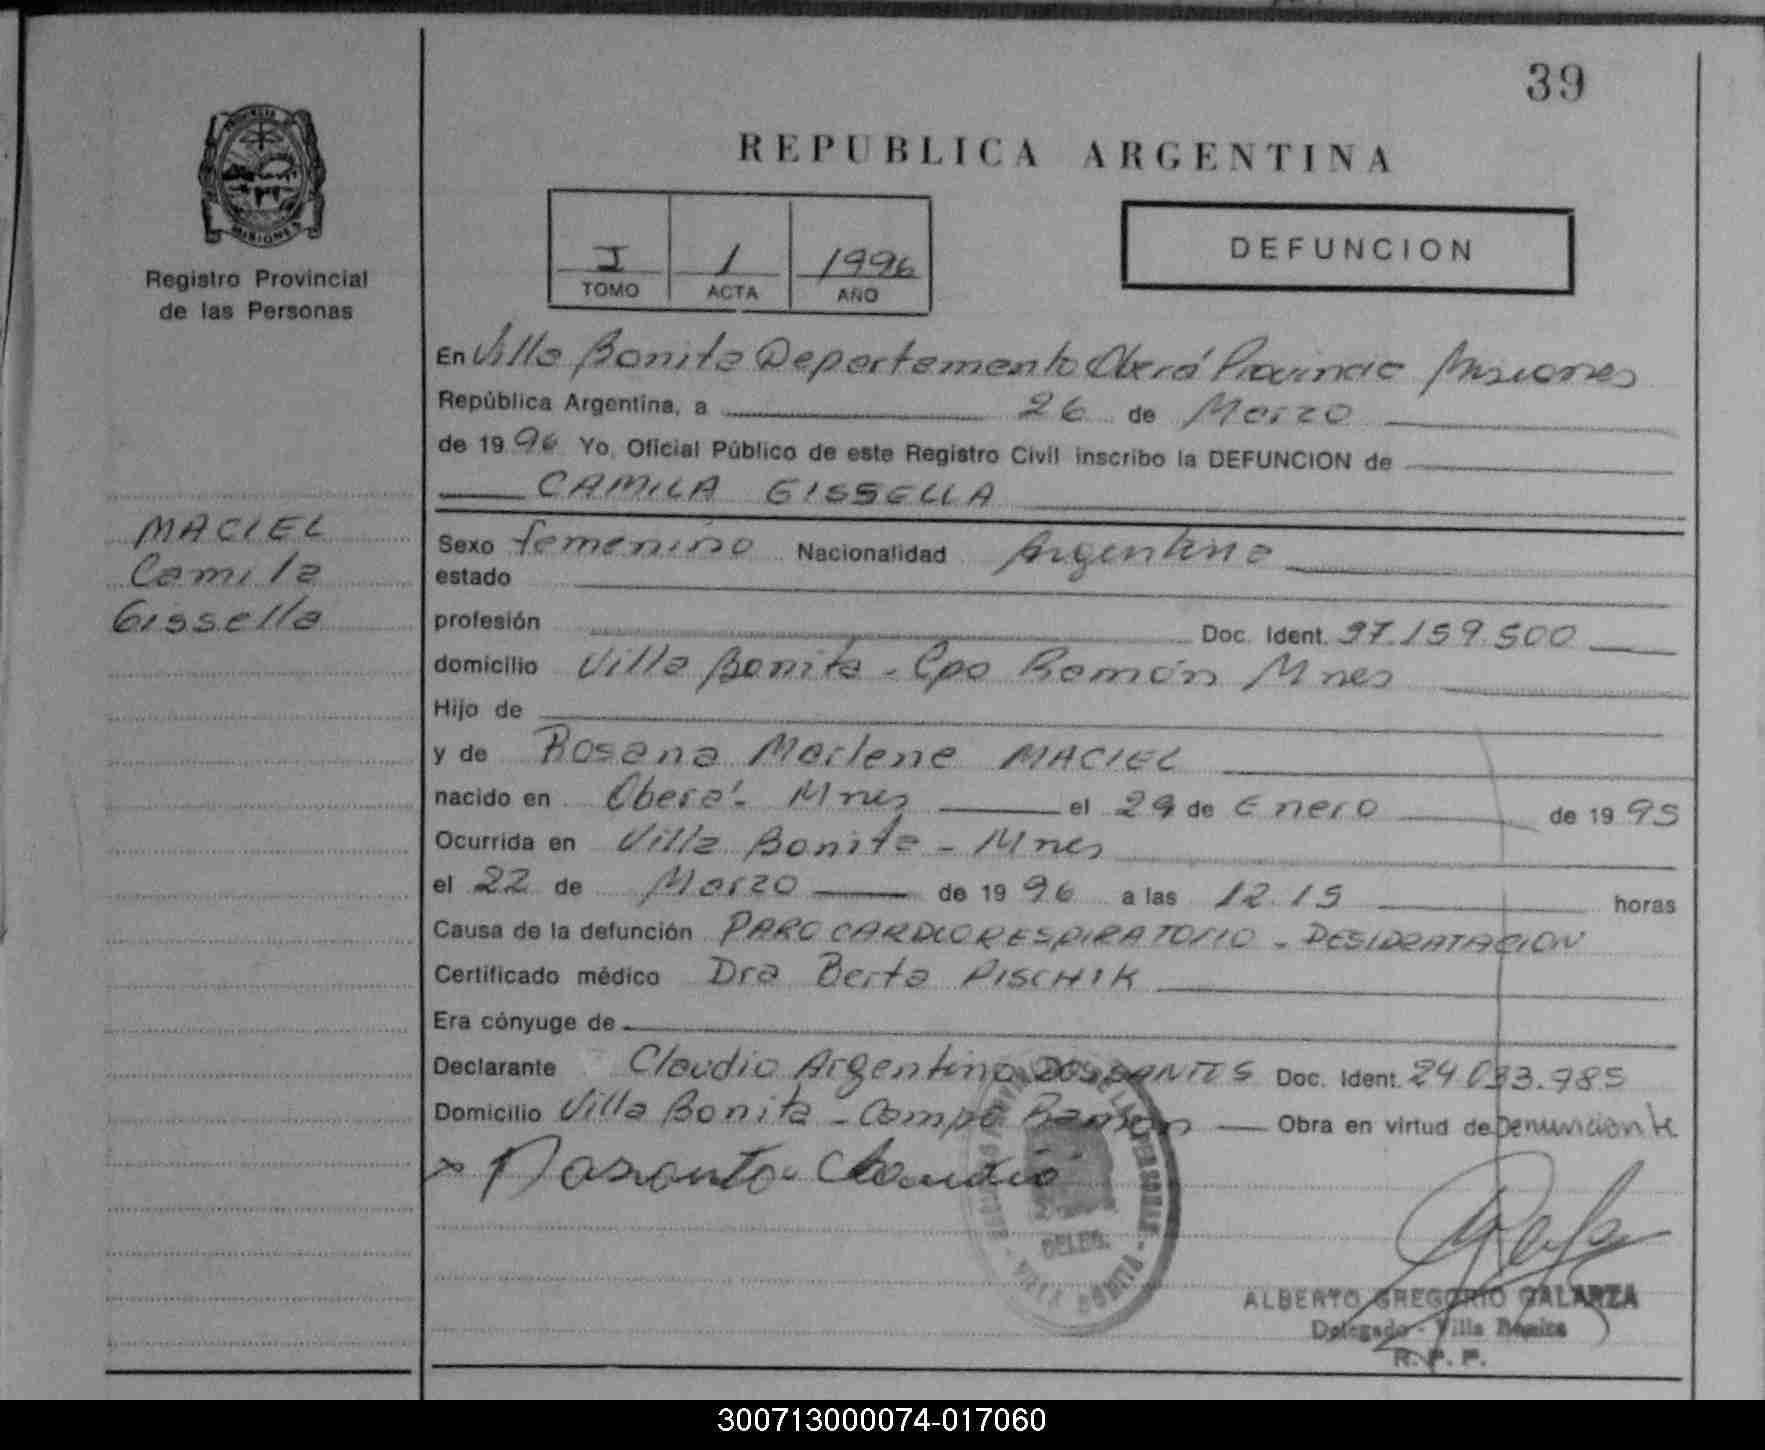 39
REPUBLICA ARGENTINA
PROVINCIA
MISIONES
Registro Provincial
de las Personas
I 1 1996
TOMO ACTA AÑO
DEFUNCION
En Villa Bonita Departamento Oberá Provincia Misiones
República Argentina, a 26 de Marzo
de 1996 Yo, Oficial Público de este Registro Civil inscribo la DEFUNCION de
CAMILA GISSELLA
MACIEL
Camila
Gissella
Sexo femenino Nacionalidad Argentina
estado
profesión Doc. Ident. 97.159.500
domicilio Villa Bonita - Cpo Ramón Mnes
Hijo de
y de Rosana Marlene MACIEL
nacido en Oberá - Mnes el 29 de Enero de 1995
Ocurrida en Villa Bonita - Mnes
el 22 de Marzo de 1996 a las 12.15 horas
Causa de la defunción PARO CARDIORESPIRATORIO - DESIDRATACION
Certificado médico Dra Berta PISCHIK
Era cónyuge de
Declarante Claudio Argentino DOS SANTOS Doc. Ident. 24.033.985
Domicilio Villa Bonita - Campo Ramón Obra en virtud de Denunciante
Claudio
DELEG.
VILLA BONITA
ALBERTO GREGORIO GALARZA
Delegado - Villa Bonita
R. P. P.
300713000074-017060